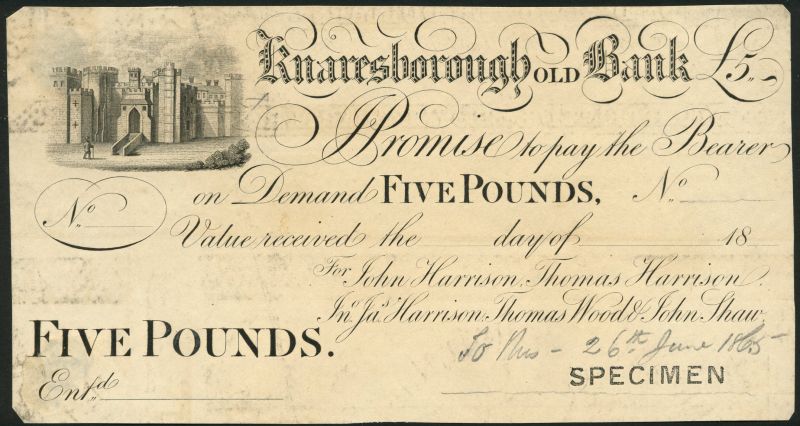 Knaresborough OLD Bank £5,,-
I Promise to pay the Bearer
on Demand FIVE POUNDS, No.
No.
Value received the day of 18
For John Harrison, Thomas Harrison.
Jno. Jas. Harrison, Thomas Wood & John Shaw,
FIVE POUNDS.
To 26th June 1865
SPECIMEN
Entd.